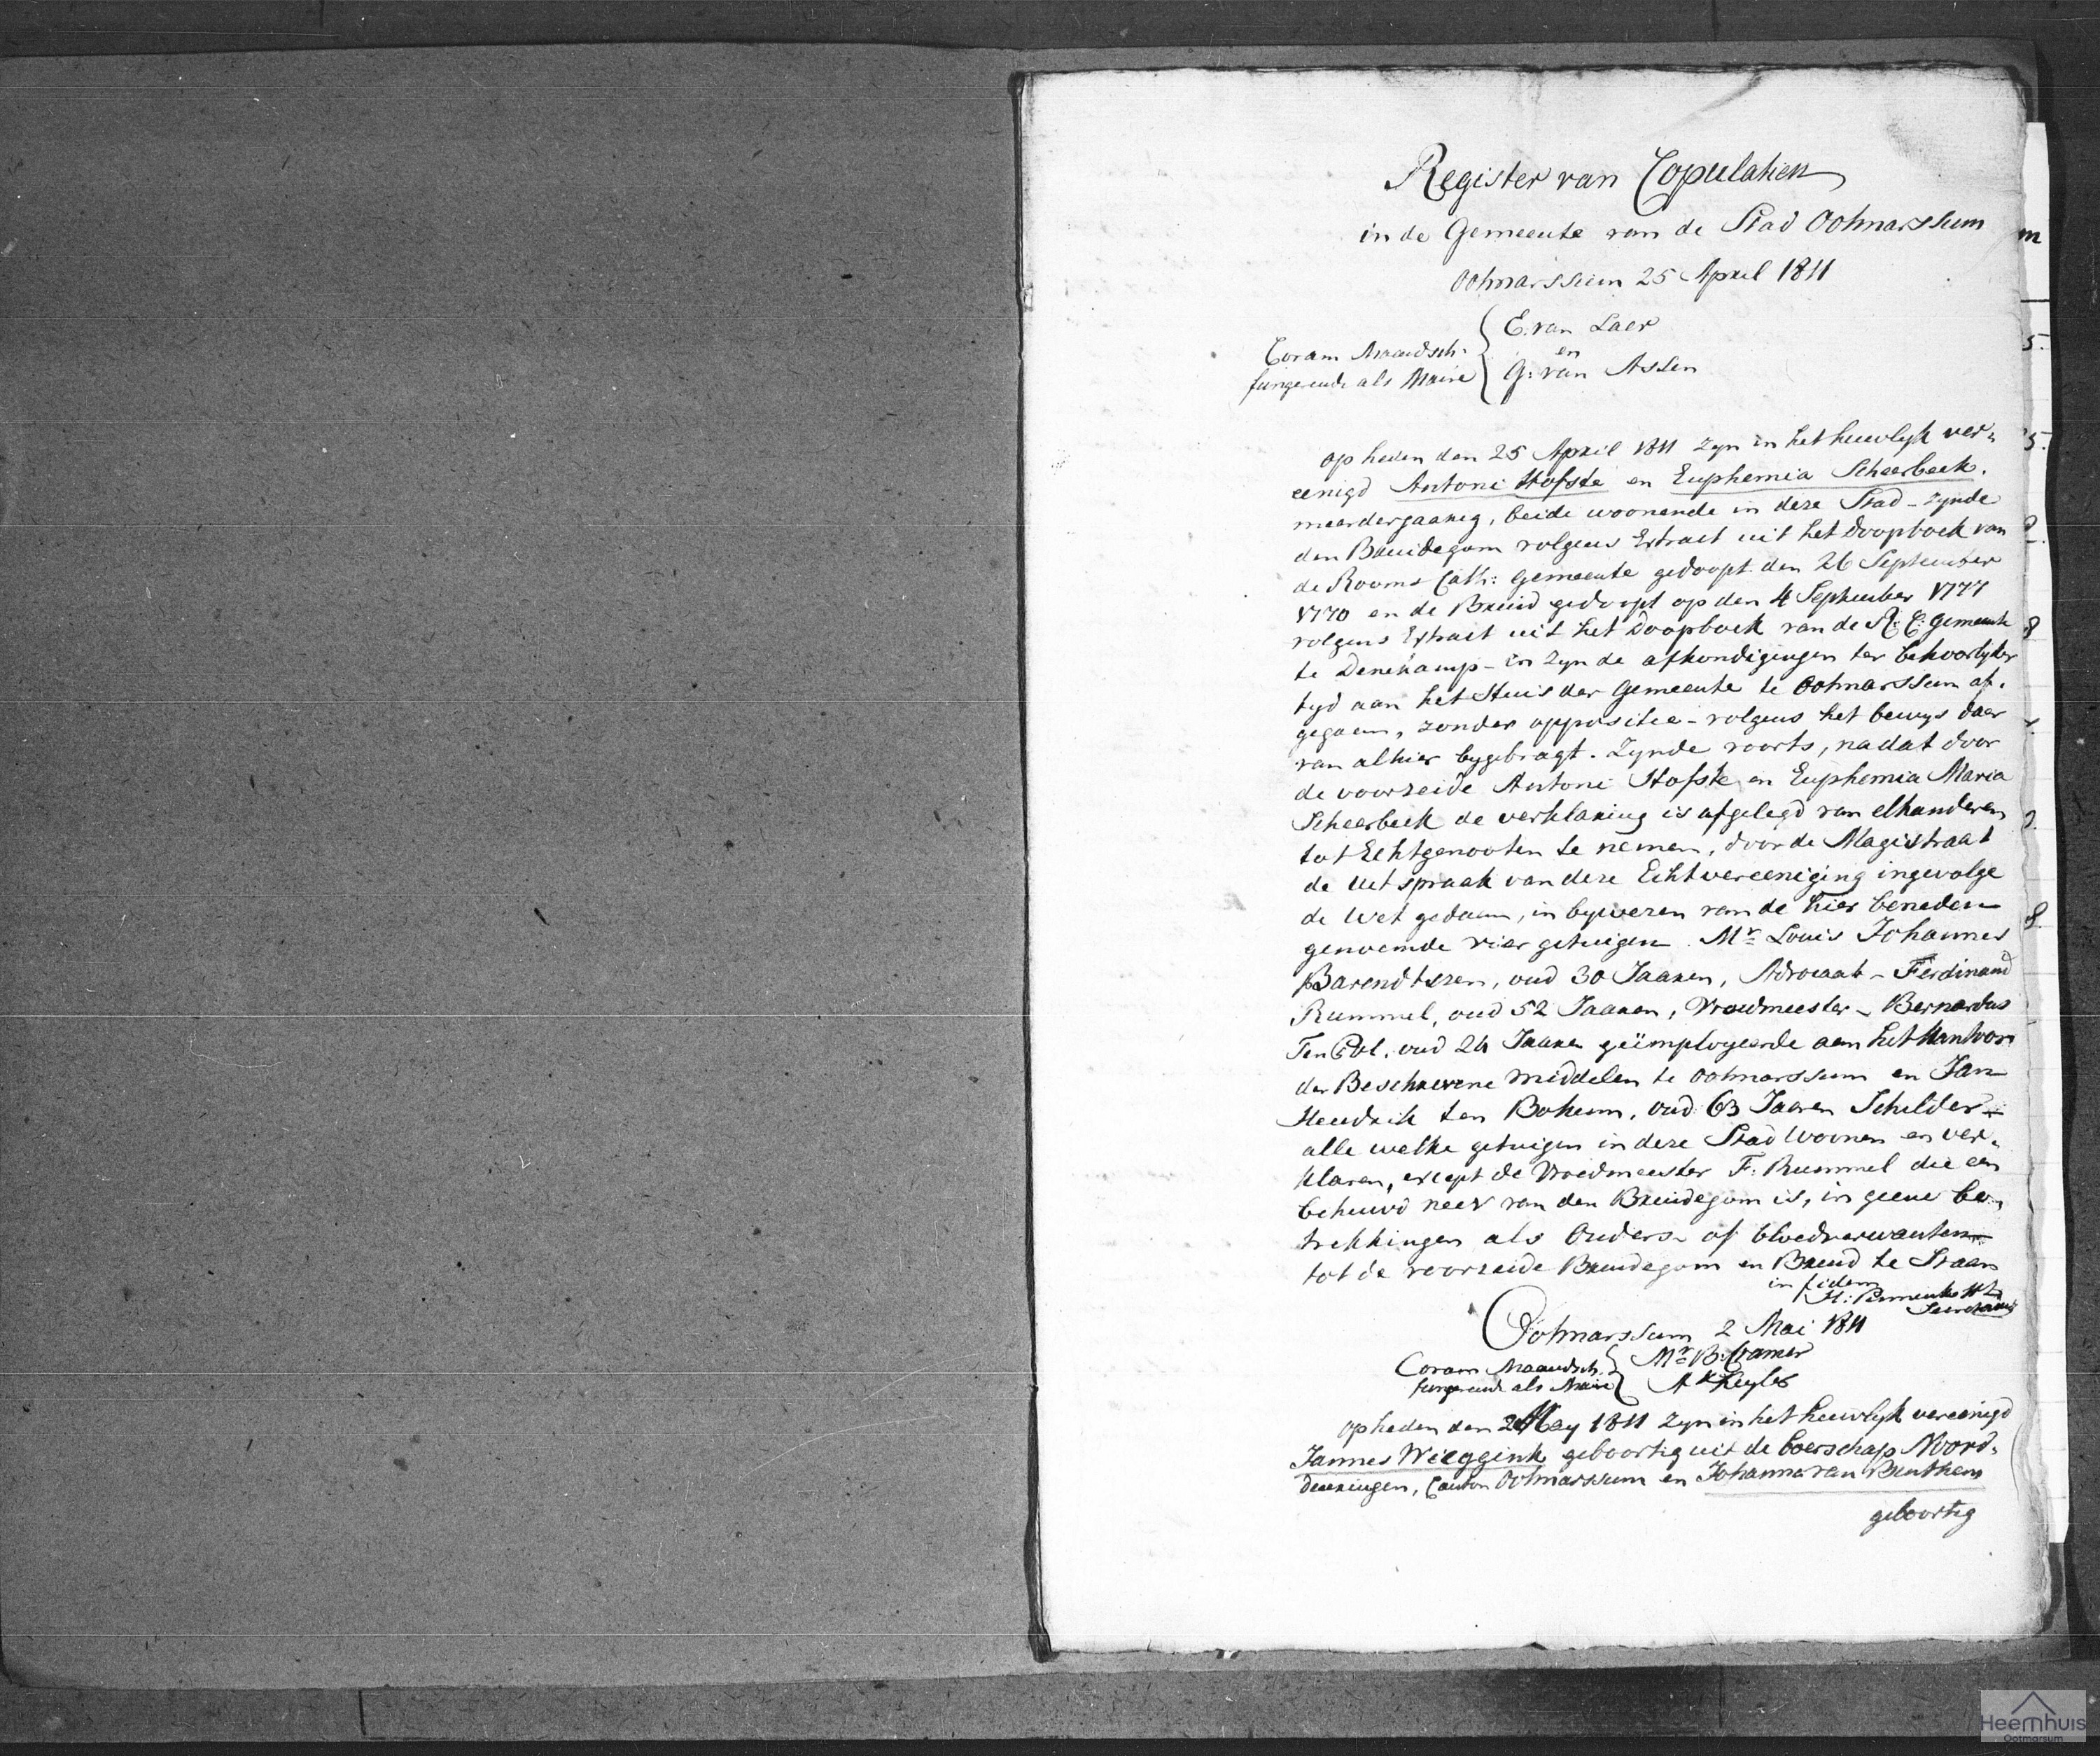 Register van Copulatien
in de Gemeente van de Stad Ootmarssum
Ootmarssum 25 April 1811
E. van Laer
Coram Maandsch:
en
fungerende als Maire
G: van Assen
op heden den 25 April 1811 zyn in het huwlyk ver„
eenigd Antoni Hofste en Euphemia Scheerbeek.
meerderjaarig, beide woonende in deze Stad - zynde
den Bruidegom volgens Extract uit het doopboek van
de Rooms Cath: gemeente gedoopt den 26 September
1770 en de Bruid gedoopt op den 4 September 1777
volgens Extract uit het Doopboek van de R: C: gemeente
te Denekamp - en zyn de afkondigingen ter behoorlyker
tyd aan het Huis der Gemeente te Ootmarssum af.
gegaan, zonder oppositie - volgens het bewys daar
van alhier bygebragt. Zynde voorts, nadat door
de voorzeide Antoni Hofste en Euphemia Maria
Scheerbeek de verklaring is afgelegd van elkanderen
tot Echtgenooten te nemen, door de Magistraat
de Uitspraak van deze Echtvereeniging ingevolge
de Wet gedaan, in bywezen van de hier beneden
genoemde vier getuigen Mr. Louis Johannes
Barendtszen, oud 30 Jaaren, Advocaat - Ferdinand
Rummel, oud 52 Jaaren, Vroedmeester - Bernardus
Ten Pol, oud 24 Jaaren geëmployeerde aan het Kantoor
der Beschrevene middelen te Ootmarssum en Jan
Hendrik ten Bokum, oud 63 Jaaren Schilder -
alle welke getuigen in deze Stad Woonen en ver„
klaren, except de Vroedmeester F: Rummel die een
behuwd neev van den Bruidegom is, in geene be„
trekkingen als Ouders of bloedverwanten
tot de voorzeide Bruidegom en Bruid te Staan
in fidem
Secretaris
Ootmarssum 2 Mai 1811
Coram Maandsch.
Mr. B: Cramer
fungerende als Maire
op heden den 2 May 1811 zyn in het huwlyk vereenigd
Jannes Wieggink geboortig uit de boerschap Noord„
deuringen, Canton Ootmarssum en Johanna van Benthem
geboortig
Heemhuis
Ootmarsum